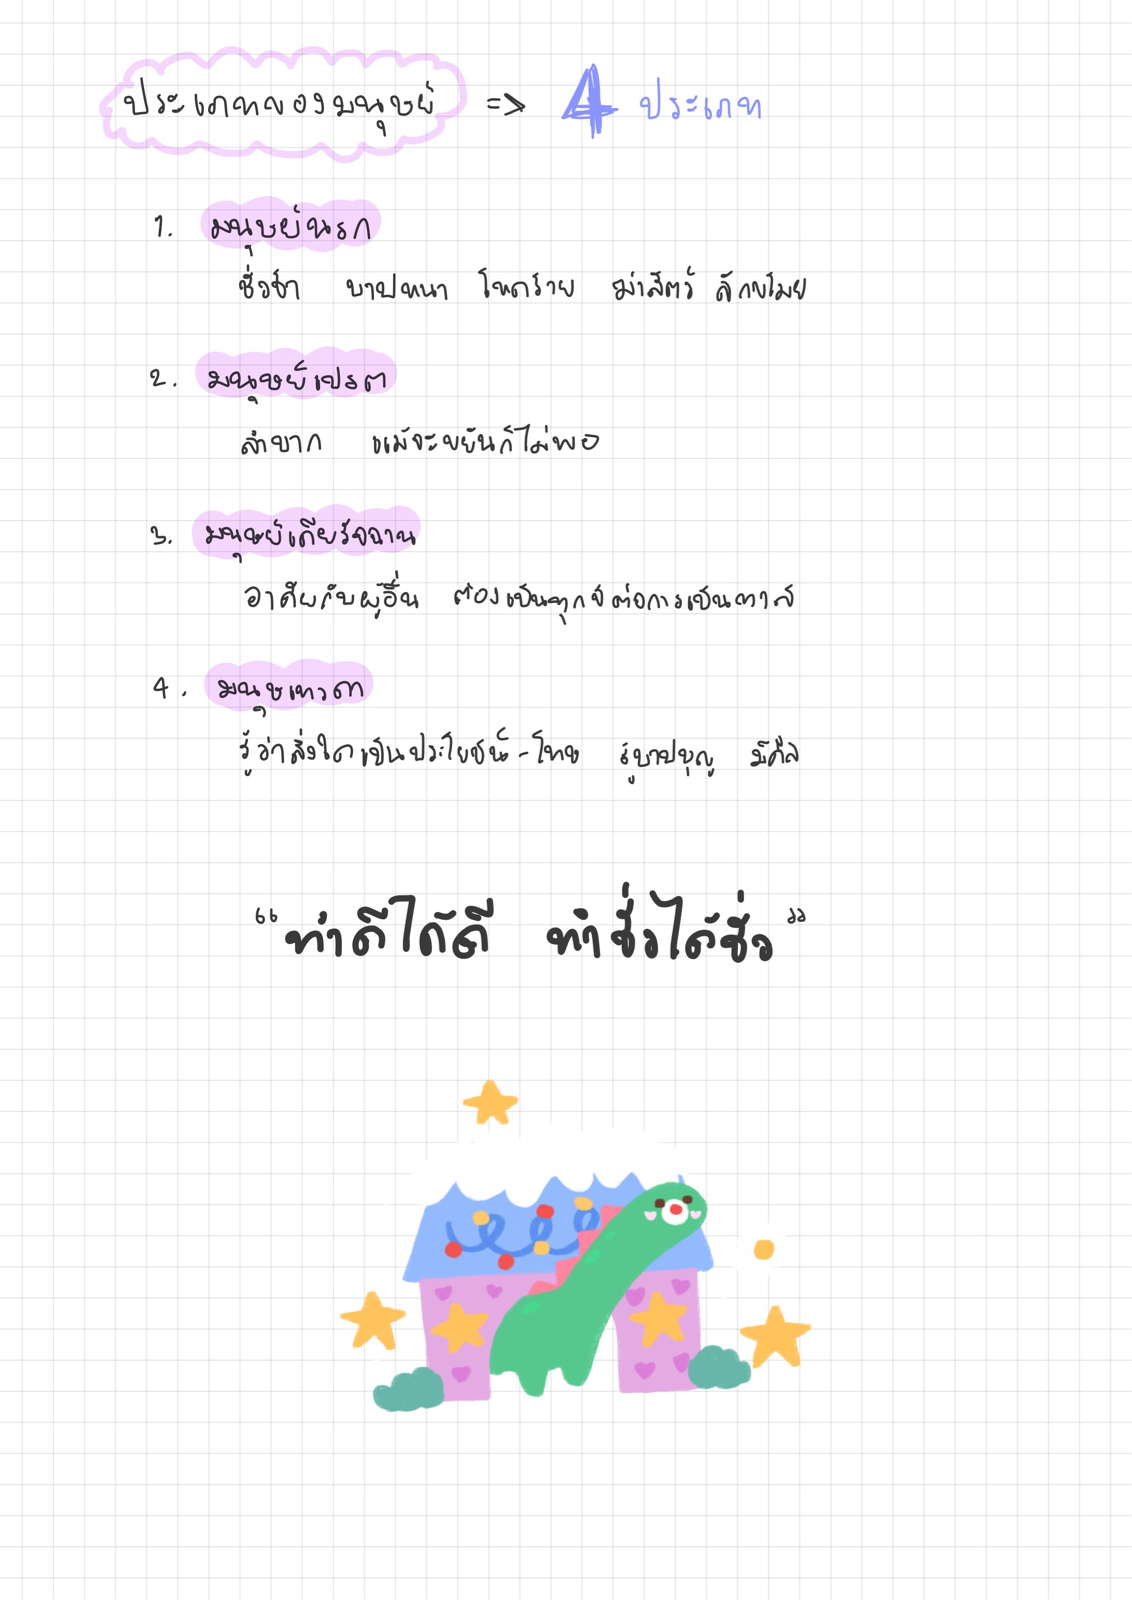 ประเภทของมนุษย์ => 4 ประเภท
1. มนุษย์นรก
ชั่วช้า บาปหนา โหดร้าย ฆ่าสัตว์ ลักขโมย
2. มนุษย์เปรต
ลำบาก แม้จะขยันก็ไม่พอ
3. มนุษย์เดียรัจฉาน
อาศัยกับผู้อื่น ต้องเป็นทุกข์ต่อการเป็นทาส
4. มนุษเทวดา
รู้ว่าสิ่งใดเป็นประโยชน์-โทษ รู้บาปบุญ มีศีล
"ทำดีได้ดี ทำชั่วได้ชั่ว"